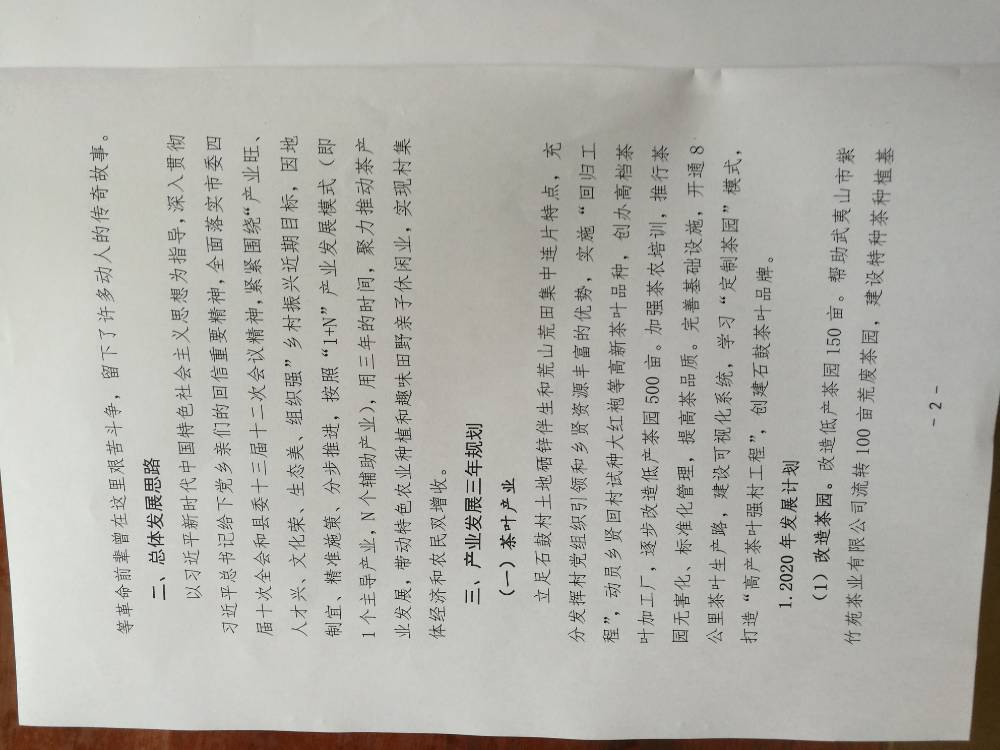 等革命前辈曾在这里艰苦斗争，留下了许多动人的传奇故事。
二、总体发展思路
以习近平新时代中国特色社会主义思想为指导，深入贯彻
习近平总书记给下党乡亲们的回信重要精神，全面落实市委四
届十次全会和县委十三届十二次会议精神，紧紧围绕“产业旺、
人才兴、文化荣、生态美、组织强”乡村振兴近期目标，因地
制宜、精准施策、分步推进，按照“1+N”产业发展模式（即
1个主导产业，N个辅助产业），用三年的时间，聚力推动茶产
业发展，带动特色农业种植和趣味田野亲子休闲业，实现村集
体经济和农民双增收。
三、产业发展三年规划
（一）茶叶产业
立足石鼓村土地硒锌伴生和荒山荒田集中连片特点，充
分发挥村党组织引领和乡贤资源丰富的优势，实施“回归工
程”，动员乡贤回村试种大红袍等高新茶叶品种，创办高档茶
叶加工厂，逐步改造低产茶园500亩。加强茶农培训，推行茶
园无害化、标准化管理，提高茶品质。完善基础设施，开通8
公里茶叶生产路，建设可视化系统，学习“定制茶园”模式，
打造“高产茶叶强村工程”，创建石鼓茶叶品牌。
1.2020年发展计划
（1）改造茶园。改造低产茶园150亩。帮助武夷山市紫
竹苑茶业有限公司流转100亩荒废茶园，建设特种茶种植基
- 2 -